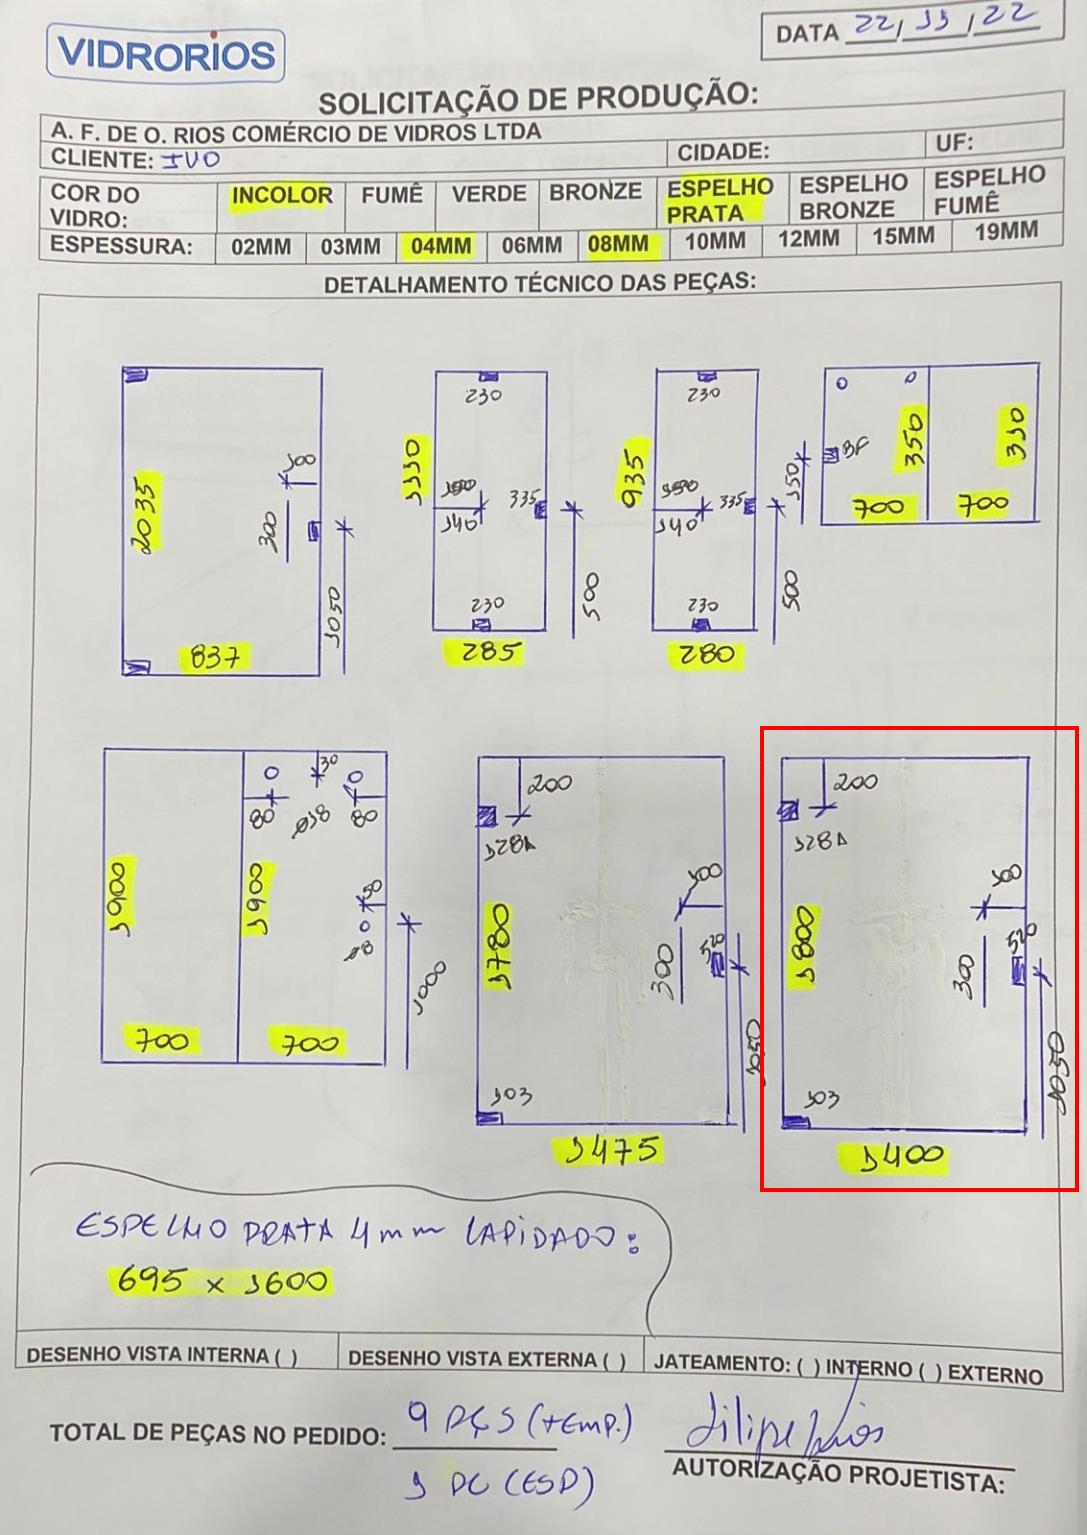 VIDRORIOS
DATA 22/11/22
SOLICITAÇÃO DE PRODUÇÃO:
A. F. DE O. RIOS COMÉRCIO DE VIDROS LTDA
CLIENTE: IVO CIDADE: UF:
COR DO VIDRO: INCOLOR FUMÊ VERDE BRONZE ESPELHO PRATA ESPELHO BRONZE ESPELHO FUMÊ
ESPESSURA: 02MM 03MM 04MM 06MM 08MM 10MM 12MM 15MM 19MM
DETALHAMENTO TÉCNICO DAS PEÇAS:
2035
100
300
1050
837
230
1110
140
335
500
230
285
230
935
140
335
500
230
280
150
BF
350
310
700
700
1900
1900
30
80
80
50
1000
700
700
200
128A
1780
100
300
120
1050
103
1475
200
128A
1800
100
300
520
1050
103
1400
ESPELHO PRATA 4mm LAPIDADO:
695 x 1600
DESENHO VISTA INTERNA ( ) DESENHO VISTA EXTERNA ( ) JATEAMENTO: ( ) INTERNO ( ) EXTERNO
TOTAL DE PEÇAS NO PEDIDO: 9 PÇS (TEMP.)
1 PC (ESP)
Filipe Rios
AUTORIZAÇÃO PROJETISTA: